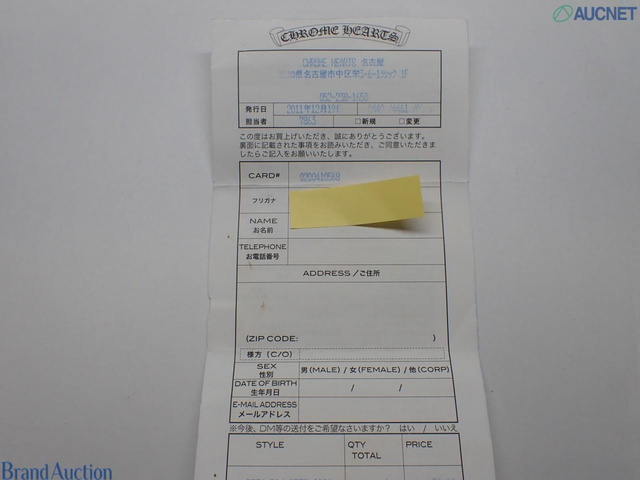 AUCNET
CHROME HEARTS
CHROME HEARTS 名古屋
県名古屋市中区栄
1F
発行日 2011年12月
担当者 7863 □新規 □変更
この度はお買上げいただき、誠にありがとうございます。
裏面に記載された事項をお読みいただき、ご同意いただきま
したらご記入をお願いいたします。
CARD# 0200410589
フリガナ
NAME
お名前
TELEPHONE
お電話番号
ADDRESS/ご住所
(ZIP CODE: )
様方 (C/O)
SEX
性別
男(MALE) / 女(FEMALE) / 他(CORP)
DATE OF BIRTH
生年月日
/ /
E-MAIL ADDRESS
メールアドレス
※今後、DM等の送付をご希望なさいますか? はい / いいえ
STYLE QTY TOTAL PRICE
Brand Auction